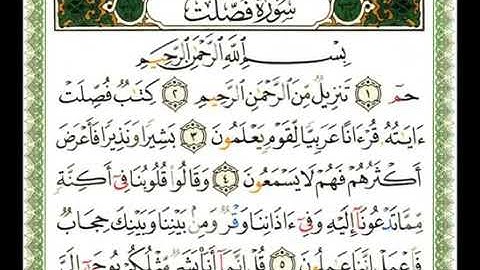 سُورَةُ فُصِّلَتْ
بِسْمِ ٱللَّهِ ٱلرَّحْمَٰنِ ٱلرَّحِيمِ
حمٓ ١ تَنزِيلٌ مِّنَ ٱلرَّحْمَٰنِ ٱلرَّحِيمِ ٢ كِتَٰبٌ فُصِّلَتْ
ءَايَٰتُهُۥ قُرْءَانًا عَرَبِيًّا لِّقَوْمٍ يَعْلَمُونَ ٣ بَشِيرًا وَنَذِيرًا فَأَعْرَضَ
أَكْثَرُهُمْ فَهُمْ لَا يَسْمَعُونَ ٤ وَقَالُوا۟ قُلُوبُنَا فِىٓ أَكِنَّةٍ
مِّمَّا تَدْعُونَآ إِلَيْهِ وَفِىٓ ءَاذَانِنَا وَقْرٌ وَمِنۢ بَيْنِنَا وَبَيْنِكَ حِجَابٌ
فَٱعْمَلْ إِنَّنَا عَٰمِلُونَ ٥ قُلْ إِنَّمَآ أَنَا۠ بَشَرٌ مِّثْلُكُمْ يُوحَىٰٓ إِلَىَّ